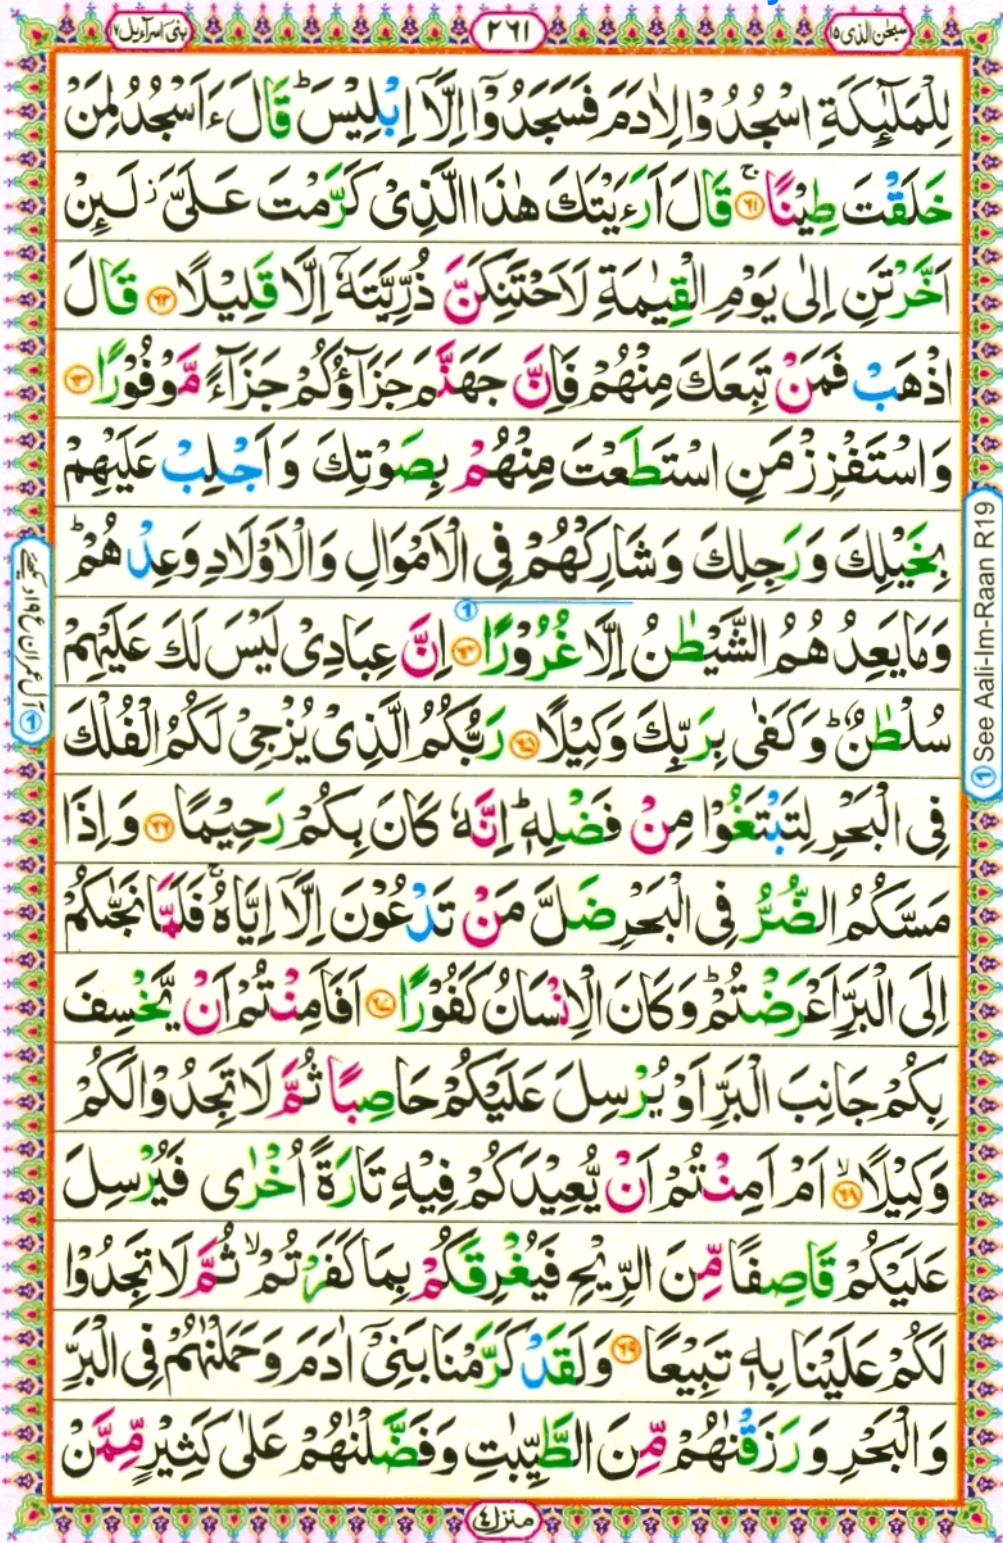 سبحٰن الذی ١٥
٢٦١
بنی اسرآءیل ١٧
لِلْمَلٰٓئِكَةِ اسْجُدُوْا لِاٰدَمَ فَسَجَدُوْۤا اِلَّاۤ اِبْلِیْسَ ؕ قَالَ ءَاَسْجُدُ لِمَنْ
خَلَقْتَ طِیْنًا ۚ ﴿٦١﴾ قَالَ اَرَءَیْتَكَ هٰذَا الَّذِیْ كَرَّمْتَ عَلَیَّ ؗ لَىِٕنْ
اَخَّرْتَنِ اِلٰی یَوْمِ الْقِیٰمَةِ لَاَحْتَنِكَنَّ ذُرِّیَّتَهٗۤ اِلَّا قَلِیْلًا ﴿٦٢﴾ قَالَ
اذْهَبْ فَمَنْ تَبِعَكَ مِنْهُمْ فَاِنَّ جَهَنَّمَ جَزَآؤُكُمْ جَزَآءً مَّوْفُوْرًا ﴿٦٣﴾
وَاسْتَفْزِزْ مَنِ اسْتَطَعْتَ مِنْهُمْ بِصَوْتِكَ وَاَجْلِبْ عَلَیْهِمْ
بِخَیْلِكَ وَرَجِلِكَ وَشَارِكْهُمْ فِی الْاَمْوَالِ وَالْاَوْلَادِ وَعِدْهُمْ ؕ
وَمَا یَعِدُهُمُ الشَّیْطٰنُ اِلَّا غُرُوْرًا ﴿٦٤﴾ ① اِنَّ عِبَادِیْ لَیْسَ لَكَ عَلَیْهِمْ
سُلْطٰنٌ ؕ وَكَفٰی بِرَبِّكَ وَكِیْلًا ﴿٦٥﴾ رَبُّكُمُ الَّذِیْ یُزْجِیْ لَكُمُ الْفُلْكَ
فِی الْبَحْرِ لِتَبْتَغُوْا مِنْ فَضْلِهٖ ؕ اِنَّهٗ كَانَ بِكُمْ رَحِیْمًا ﴿٦٦﴾ وَاِذَا
مَسَّكُمُ الضُّرُّ فِی الْبَحْرِ ضَلَّ مَنْ تَدْعُوْنَ اِلَّاۤ اِیَّاهُ ۚ فَلَمَّا نَجّٰىكُمْ
اِلَی الْبَرِّ اَعْرَضْتُمْ ؕ وَكَانَ الْاِنْسَانُ كَفُوْرًا ﴿٦٧﴾ اَفَاَمِنْتُمْ اَنْ یَّخْسِفَ
بِكُمْ جَانِبَ الْبَرِّ اَوْ یُرْسِلَ عَلَیْكُمْ حَاصِبًا ثُمَّ لَا تَجِدُوْا لَكُمْ
وَكِیْلًا ۙ ﴿٦٨﴾ اَمْ اَمِنْتُمْ اَنْ یُّعِیْدَكُمْ فِیْهِ تَارَةً اُخْرٰی فَیُرْسِلَ
عَلَیْكُمْ قَاصِفًا مِّنَ الرِّیْحِ فَیُغْرِقَكُمْ بِمَا كَفَرْتُمْ ۙ ثُمَّ لَا تَجِدُوْا
لَكُمْ عَلَیْنَا بِهٖ تَبِیْعًا ﴿٦٩﴾ وَلَقَدْ كَرَّمْنَا بَنِیْۤ اٰدَمَ وَحَمَلْنٰهُمْ فِی الْبَرِّ
وَالْبَحْرِ وَرَزَقْنٰهُمْ مِّنَ الطَّیِّبٰتِ وَفَضَّلْنٰهُمْ عَلٰی كَثِیْرٍ مِّمَّنْ
منزل ٤
① See Aali-Im-Raan R19
① آل عمران ع ١٩ دیکھئے